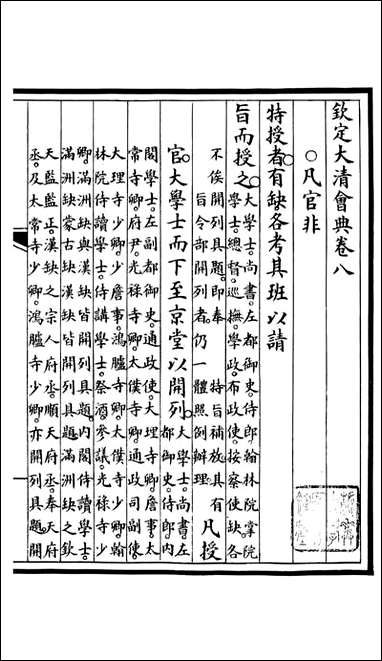 欽定大清會典卷八
○凡官非
特授者有缺各考其班以請
旨而授之大學士尚書左都御史侍郎翰林院掌院
學士總督巡撫學政布政使按察使缺各
不俟開列具題即奉特旨補放具有
旨令部開列者仍一體照例辦理凡授
官大學士而下至京堂以開列大學士尚書左
都御史侍郎內
閣學士左副都御史通政使大理寺卿詹事太
常寺卿府尹光祿寺卿太僕寺卿通政司副使
大理寺少卿少詹事鴻臚寺卿太僕寺少卿翰
林院侍讀學士侍講學士祭酒參議光祿寺少
卿滿洲缺與漢缺皆開列具題內閣侍讀學士
滿洲缺蒙古缺漢缺皆開列具題滿洲缺之欽
天監監正漢缺之宗人府丞順天府丞奉天府
丞及太常寺少卿鴻臚寺少卿亦開列具題開